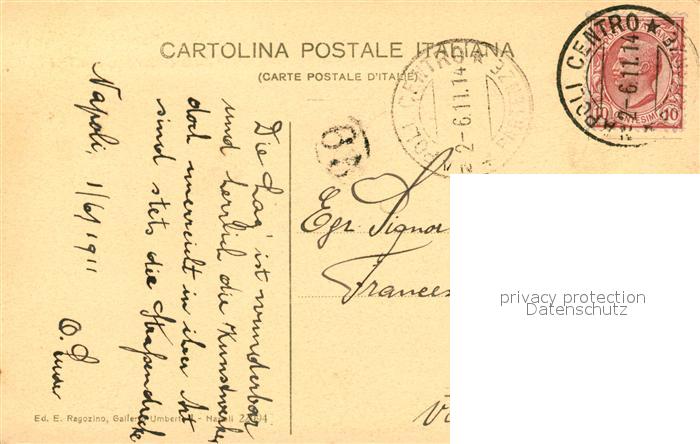 CARTOLINA POSTALE ITALIANA
(CARTE POSTALE D'ITALIE)
NAPOLI CENTRO ★
22-6.11.14
NAPOLI CENTRO ★
22-6.11.14
CENTESIMI 10
Napoli, 1/6/1911
Die Lag' ist wunderbar
und herrlich die Kunstwerke,
doch unerreicht in ihrer Art
sind stets die Straßendrecke
Egr. Signor
Frances
privacy protection
Datenschutz
Ed. E. Ragozino, Galleria Umberto I - Napoli